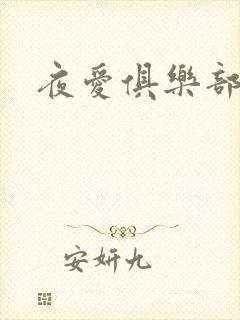 夜愛俱樂部
安妍九